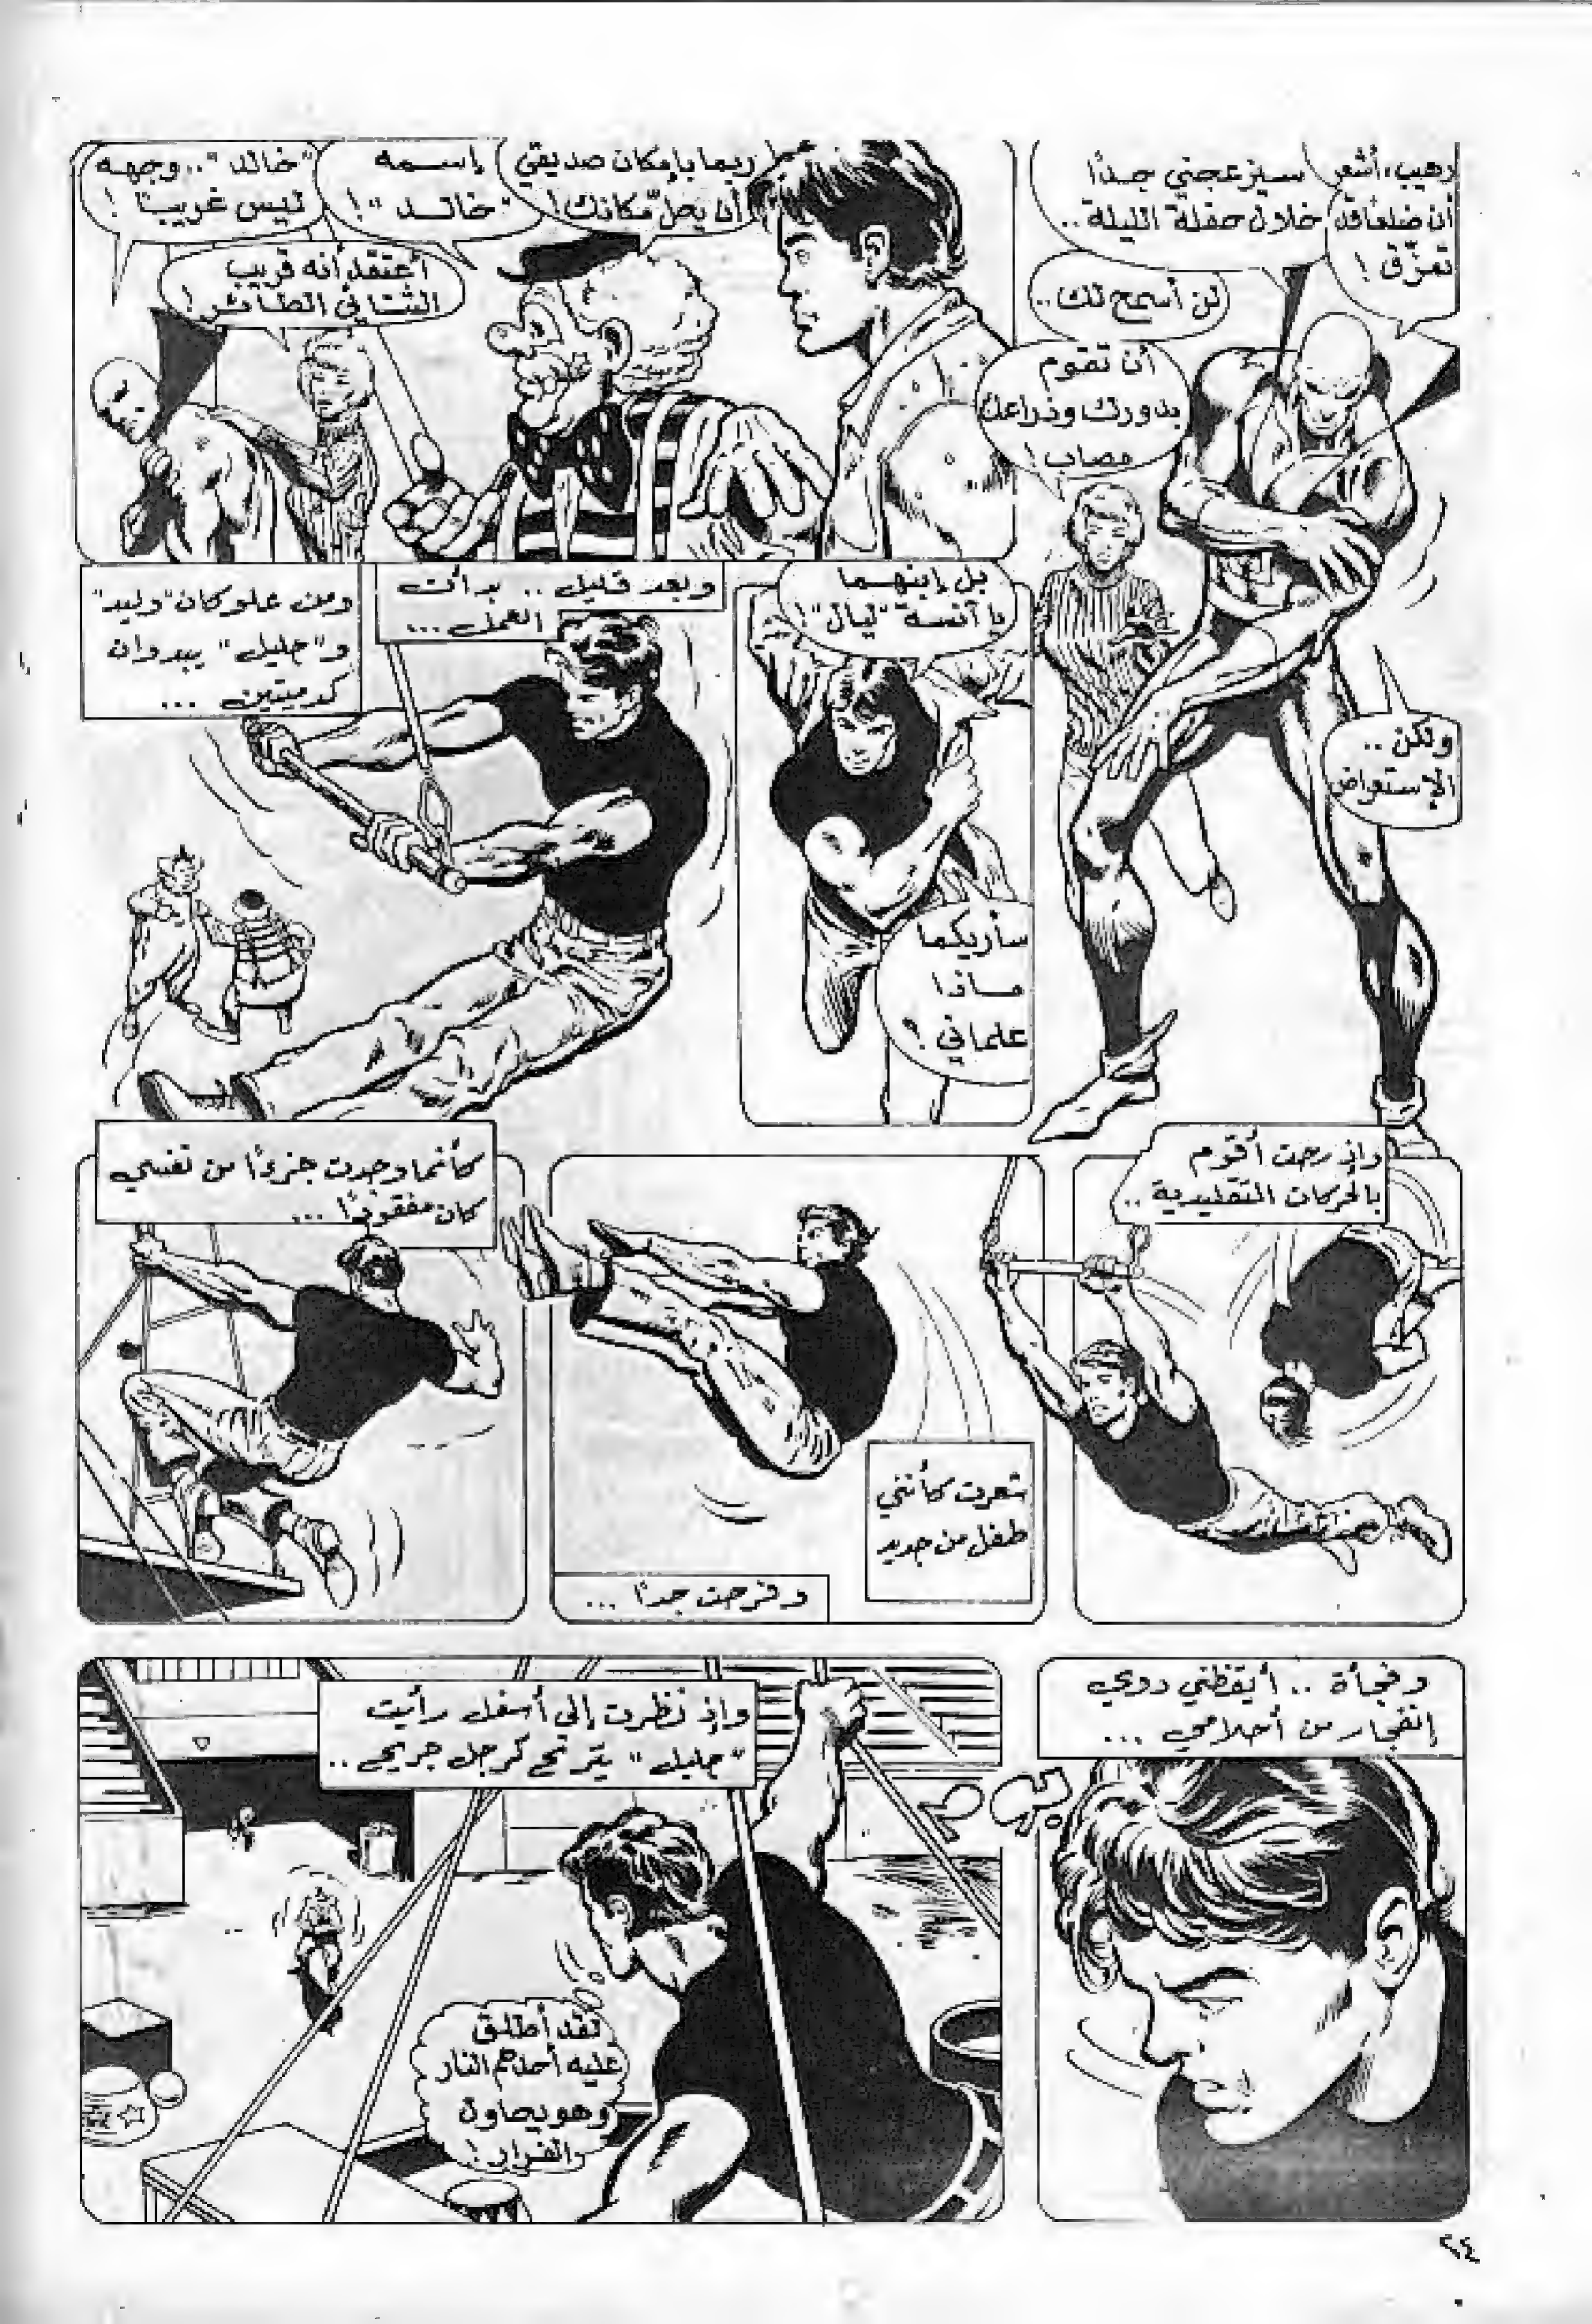 رهيب، أشعر
أن ضلعًا قد
تمزّق !
سيزعجني جدًا
خلال حفلة الليلة ..
لن أسمح لك ..
أن تقوم
بدورك وذراعك
مصاب !
ولكن ..
الإستعراض
ربما بإمكان صديقي
أن يحلّ مكانك !
إسمه
"خالد" !
"خالد" .. وجهه
ليس غريبًا !
أعتقد أنه قريب
الثنائي الطائر !
بل إبنهما
يا آنسة "ليال" !
سأريكما
ماذا
علماني !
وبعد قليل .. بدأت
العمل ...
ومن علو كان "وليد"
و"جليل" يبدوان
كدميتين ...
وإذ رحت أقوم
بالحركات التقليدية ..
شعرت كأنني
طفل من جديد
وفرحت جدًا ...
كأنما وجدت جزءًا من نفسي
كان مفقودًا ...
وفجأة .. أيقظني دوي
إنفجار من أحلامي ...
وإذ نظرت إلى أسفل رأيت
"جليل" يترنح كرجل جريح ..
لقد أطلق
عليه أحدهم النار
وهو يحاول
الفرار !
٢٤